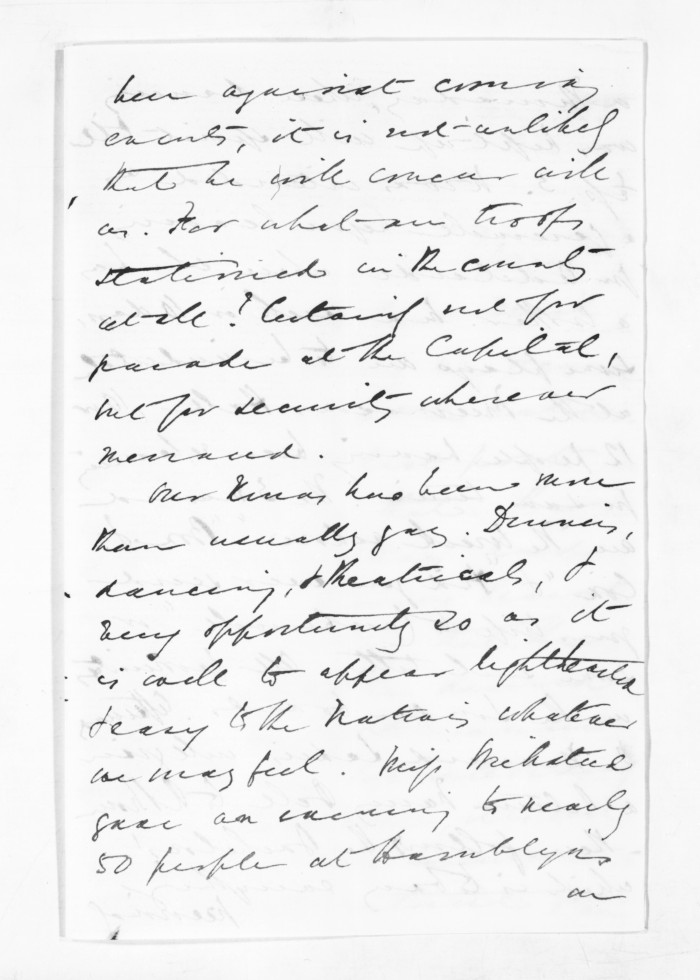 been against coming
events, it is not unlikely
that he will concur with
us. For what are troops
stationed in the country
at all? Certainly not for
parade at the Capital,
but for security wherever
menaced.
Our Xmas has been more
than usually gay. Dinners,
dancing, & theatricals, &
very opportunely so as it
is well to appear lighthearted
& easy to the Natives whatever
we may feel. Miss
gave an evening to nearly
50 people at
on